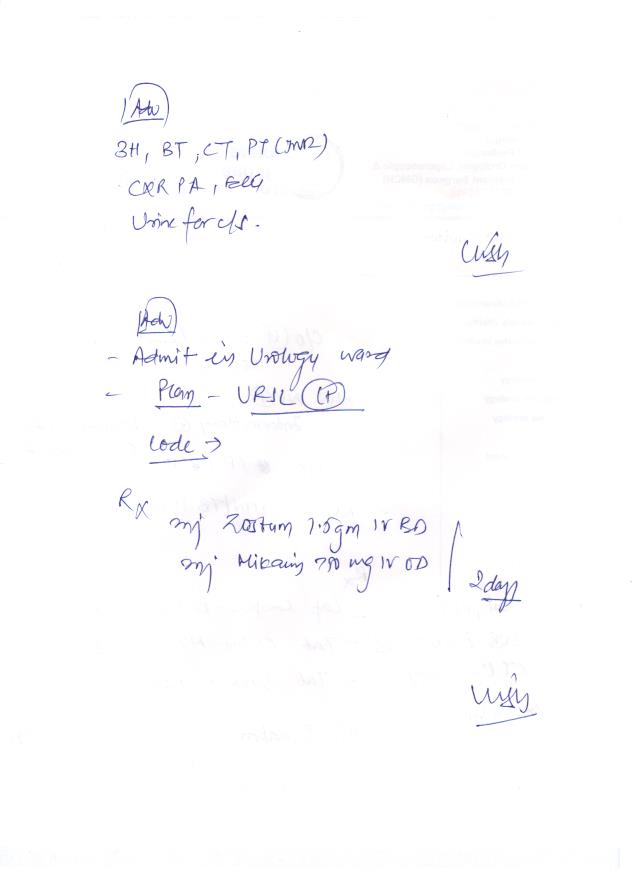 Adv
BH, BT, CT, PT (INR)
CXR PA, ECG
Urine for c/s.
Adv
- Admit in Urology ward
- Plan - URSL
Code →
Rx
inj Zostum 1.5gm IV BD
inj Mikacin 750 mg IV OD
2 days